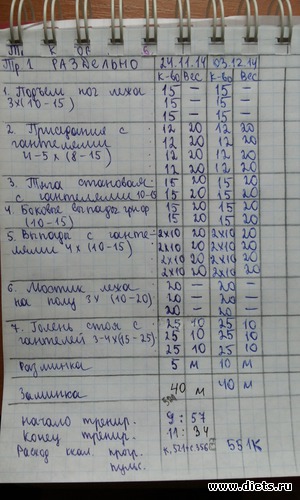 Тр.1 РАЗДЕЛЬНО 24.11.14 03.12.14
К-во Вес К-во Вес
1. Подъём ног лежа 15 — 15 —
3х(10-15) 15 — 15 —
15 — 15 —
2. Приседание с 12 20 12 20
гантелями 12 20 12 20
4-5 х (8-15) 12 20 12 20
12 20 12 20
3. Тяга становая 15 20 15 20
с гантелями 10-15 15 20 15 20
4. Боковые выпады 15 20 15 20
(10-15) 15 20 15 20
5. Выпады с ганте- 2х10 20 2х10 20
лями 4 х (10-15) 2х10 20 2х10 20
2х10 20 2х10 20
2х10 20 2х10 20
6. Мостик лежа 20 — 20 —
на полу 3х (10-20) 20 — 20 —
20 — 20 —
7. Голень стоя с 25 10 25 10
гантелей 3-4х(15-25) 25 10 25 10
25 10 25 10
Разминка 5 м 10 м
Заминка 40 м 40 м
Начало тренир. 9:57
Конец тренир. 11:34
Расход ккал. прогр. 551К
пульс.
www.diets.ru